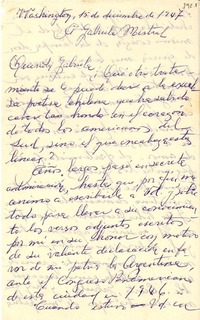 Washington, 15 de diciembre de 1947.
A Gabriela Mistral
Querida Gabriela:
¿Qué otro trata
miento se le puede dar a la excelsa
poetisa chilena que ha sabido
calar tan hondo en el corazón
de todos los americanos del
sur, sino el que encabeza estas
líneas?
Años largos pasé en secreta
admiración, hasta que por fin, me
animo a escribirle a Vd., sobre
todo para llevar a su conocimien
to los versos adjuntos escritos
por mí en su honor con motivo
de su valiente declaración en fa
vor de mi patria la Argentina,
ante el Congreso Panamericano
de esta ciudad en 1946.
Cuando estuvo Vd. en